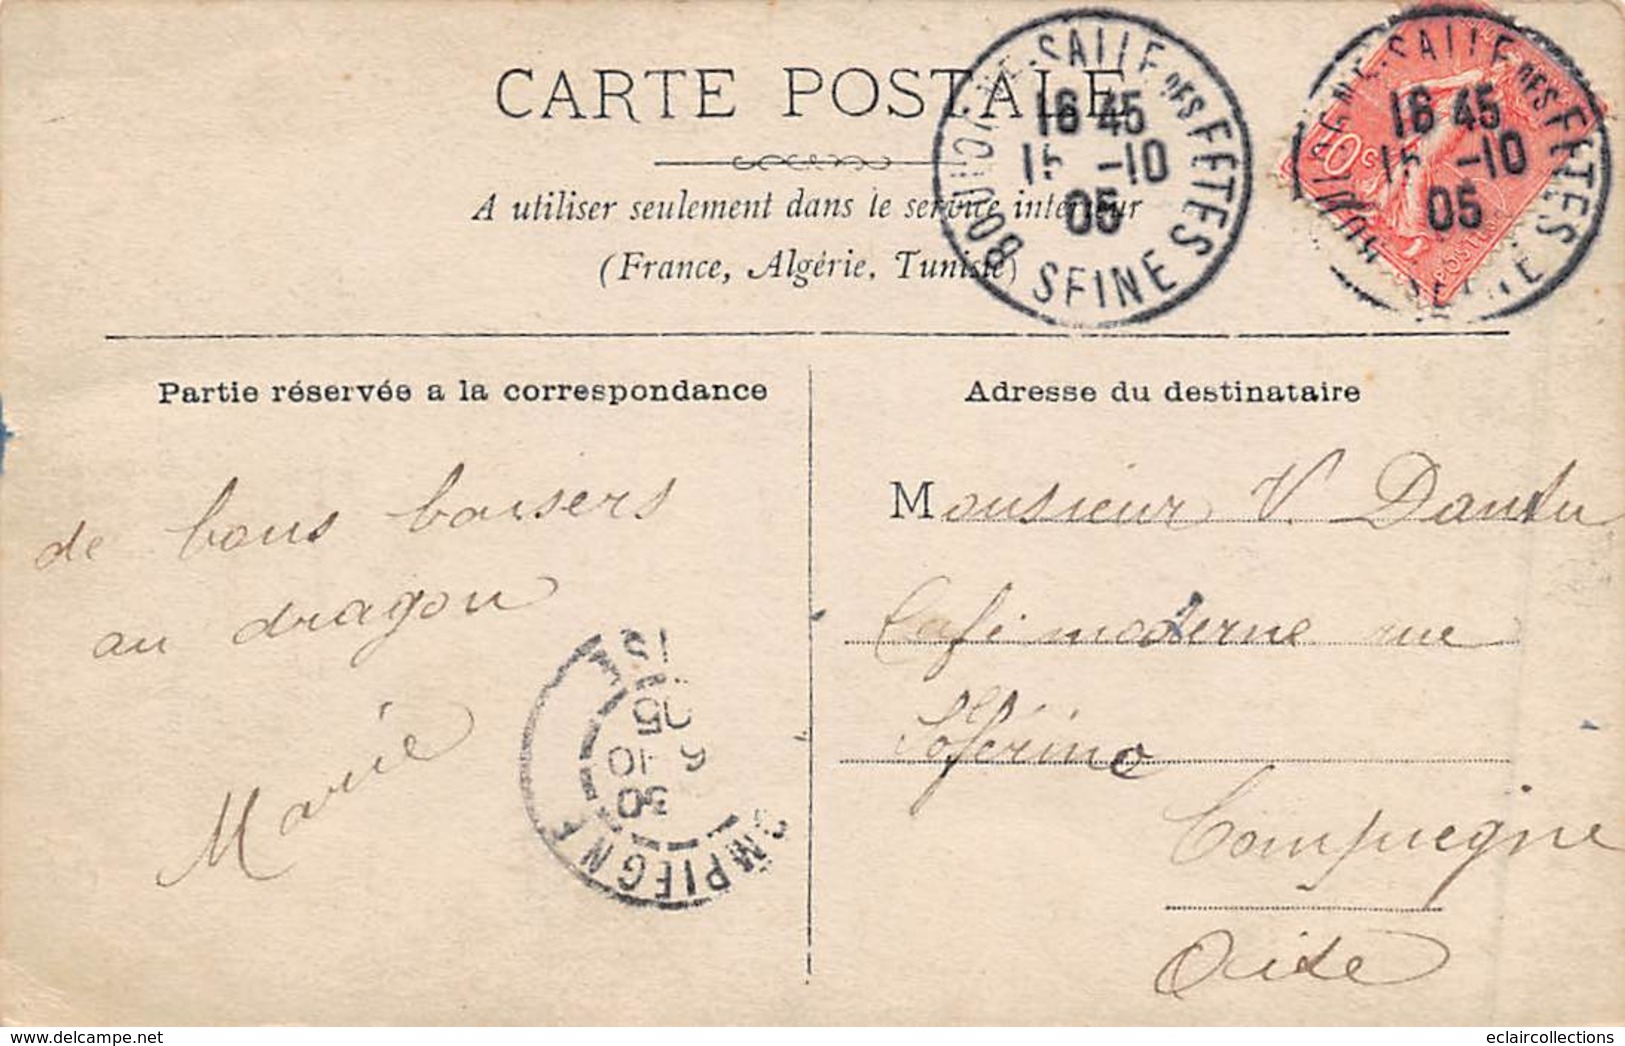 CARTE POSTALE
A utiliser seulement dans le service intérieur
(France, Algérie, Tunisie)
SALLE DES FÊTES
16 45
-10
05
SEINE
SALLE DES FÊTES
16 45
-10
05
SEINE
10
POSTES
Partie réservée a la correspondance
Adresse du destinataire
de bons baisers
au dragon
Marie
COMPIEGNE
30
10
05
Monsieur V. Dantu
Café moderne rue
Solférino
Compiegne
Oise
www.delcampe.net
eclaircollections